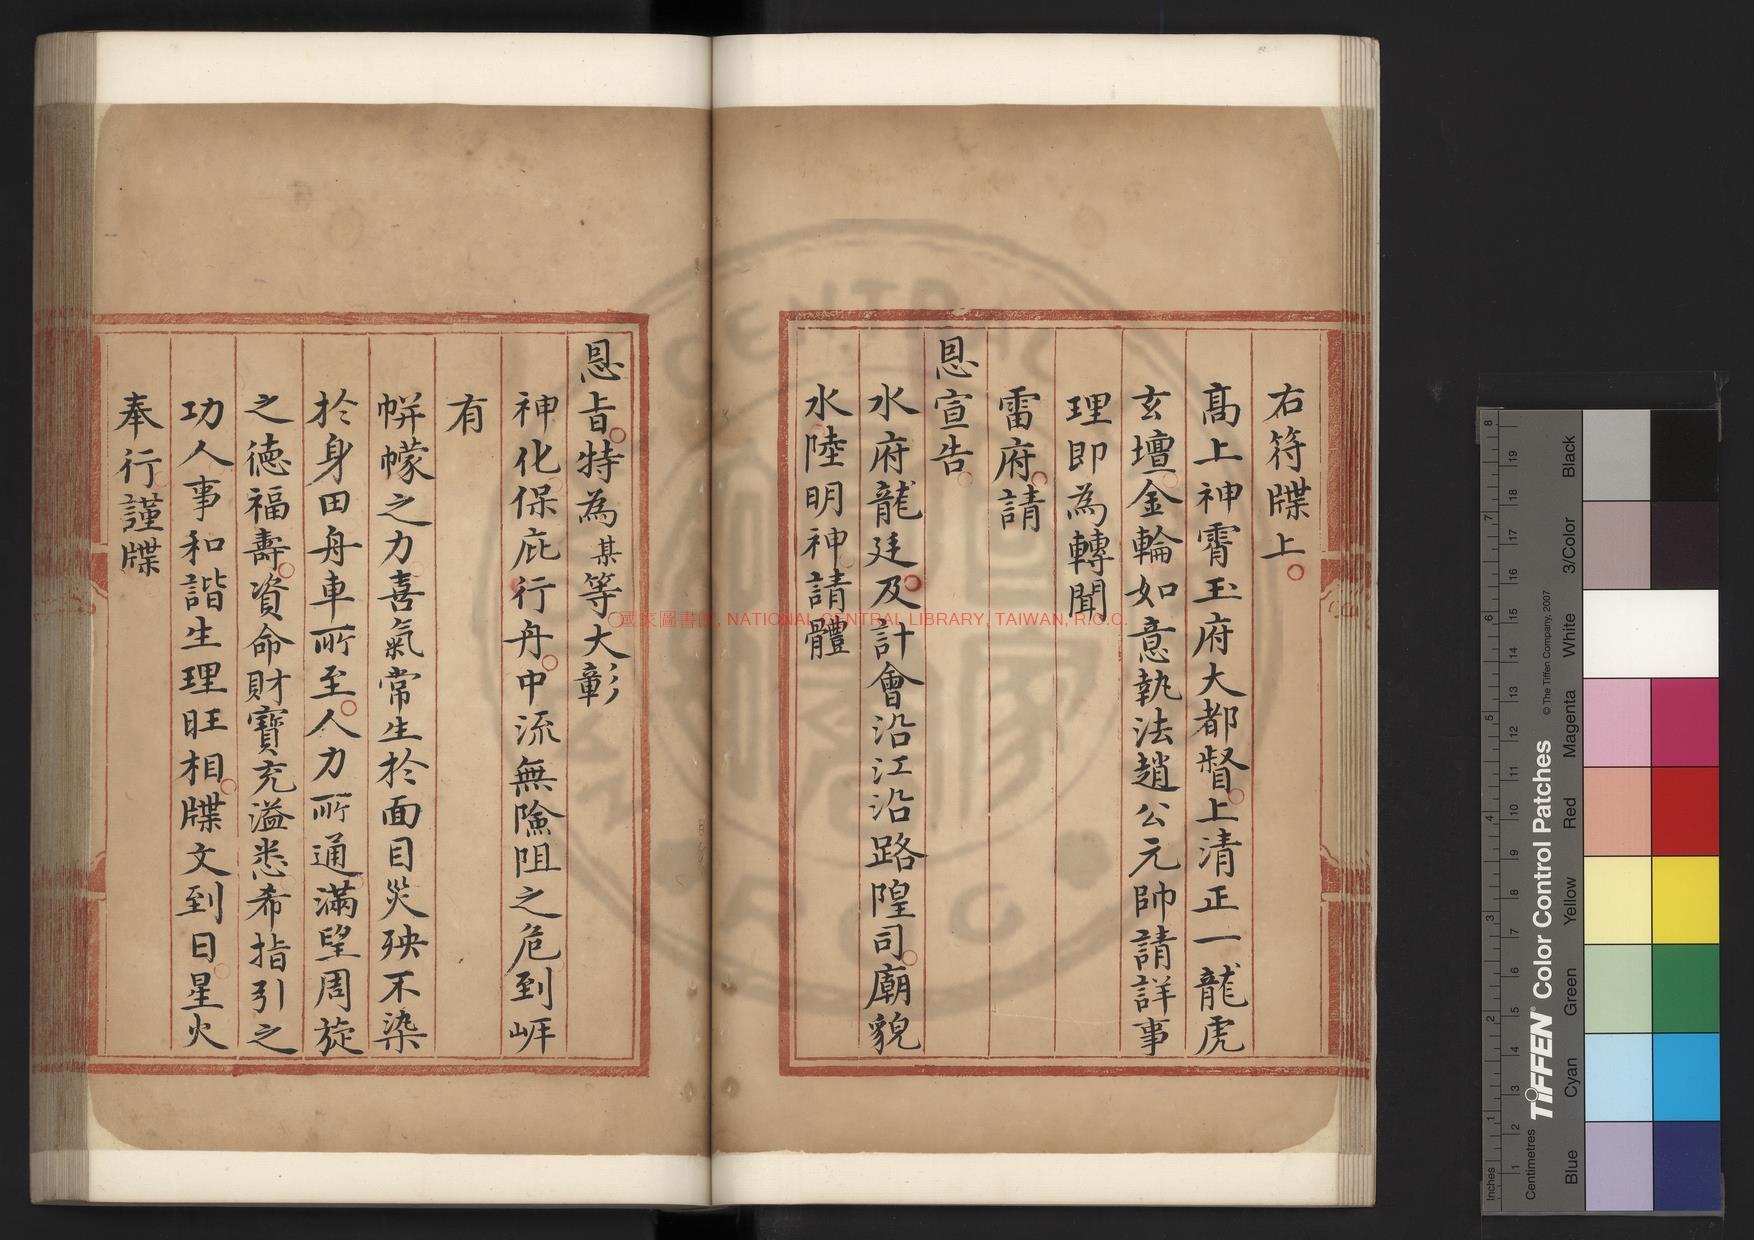 右符牒上
高上神霄玉府大都督上清正一龍虎
玄壇金輪如意執法趙公元帥請詳事
理即為轉聞
雷府請
恩宣告
水府龍廷及計會沿江沿路隍司廟貌
水陸明神請體
恩旨特為某等大彰
神化保庇行舟中流無險阻之危到岸
有
帡幪之力喜氣常生於面目災殃不染
於身田舟車所至人力所通滿望周旋
之德福壽資命財寶充溢悉希指引之
功人事和諧生理旺相牒文到日星火
奉行謹牒
國家圖書館, NATIONAL CENTRAL LIBRARY, TAIWAN, R.O.C.
CENTRAL
R O C
Inches
Centimetres
TIFFEN® Color Control Patches
© The Tiffen Company, 2007
Blue
Cyan
Green
Yellow
Red
Magenta
White
3/Color
Black